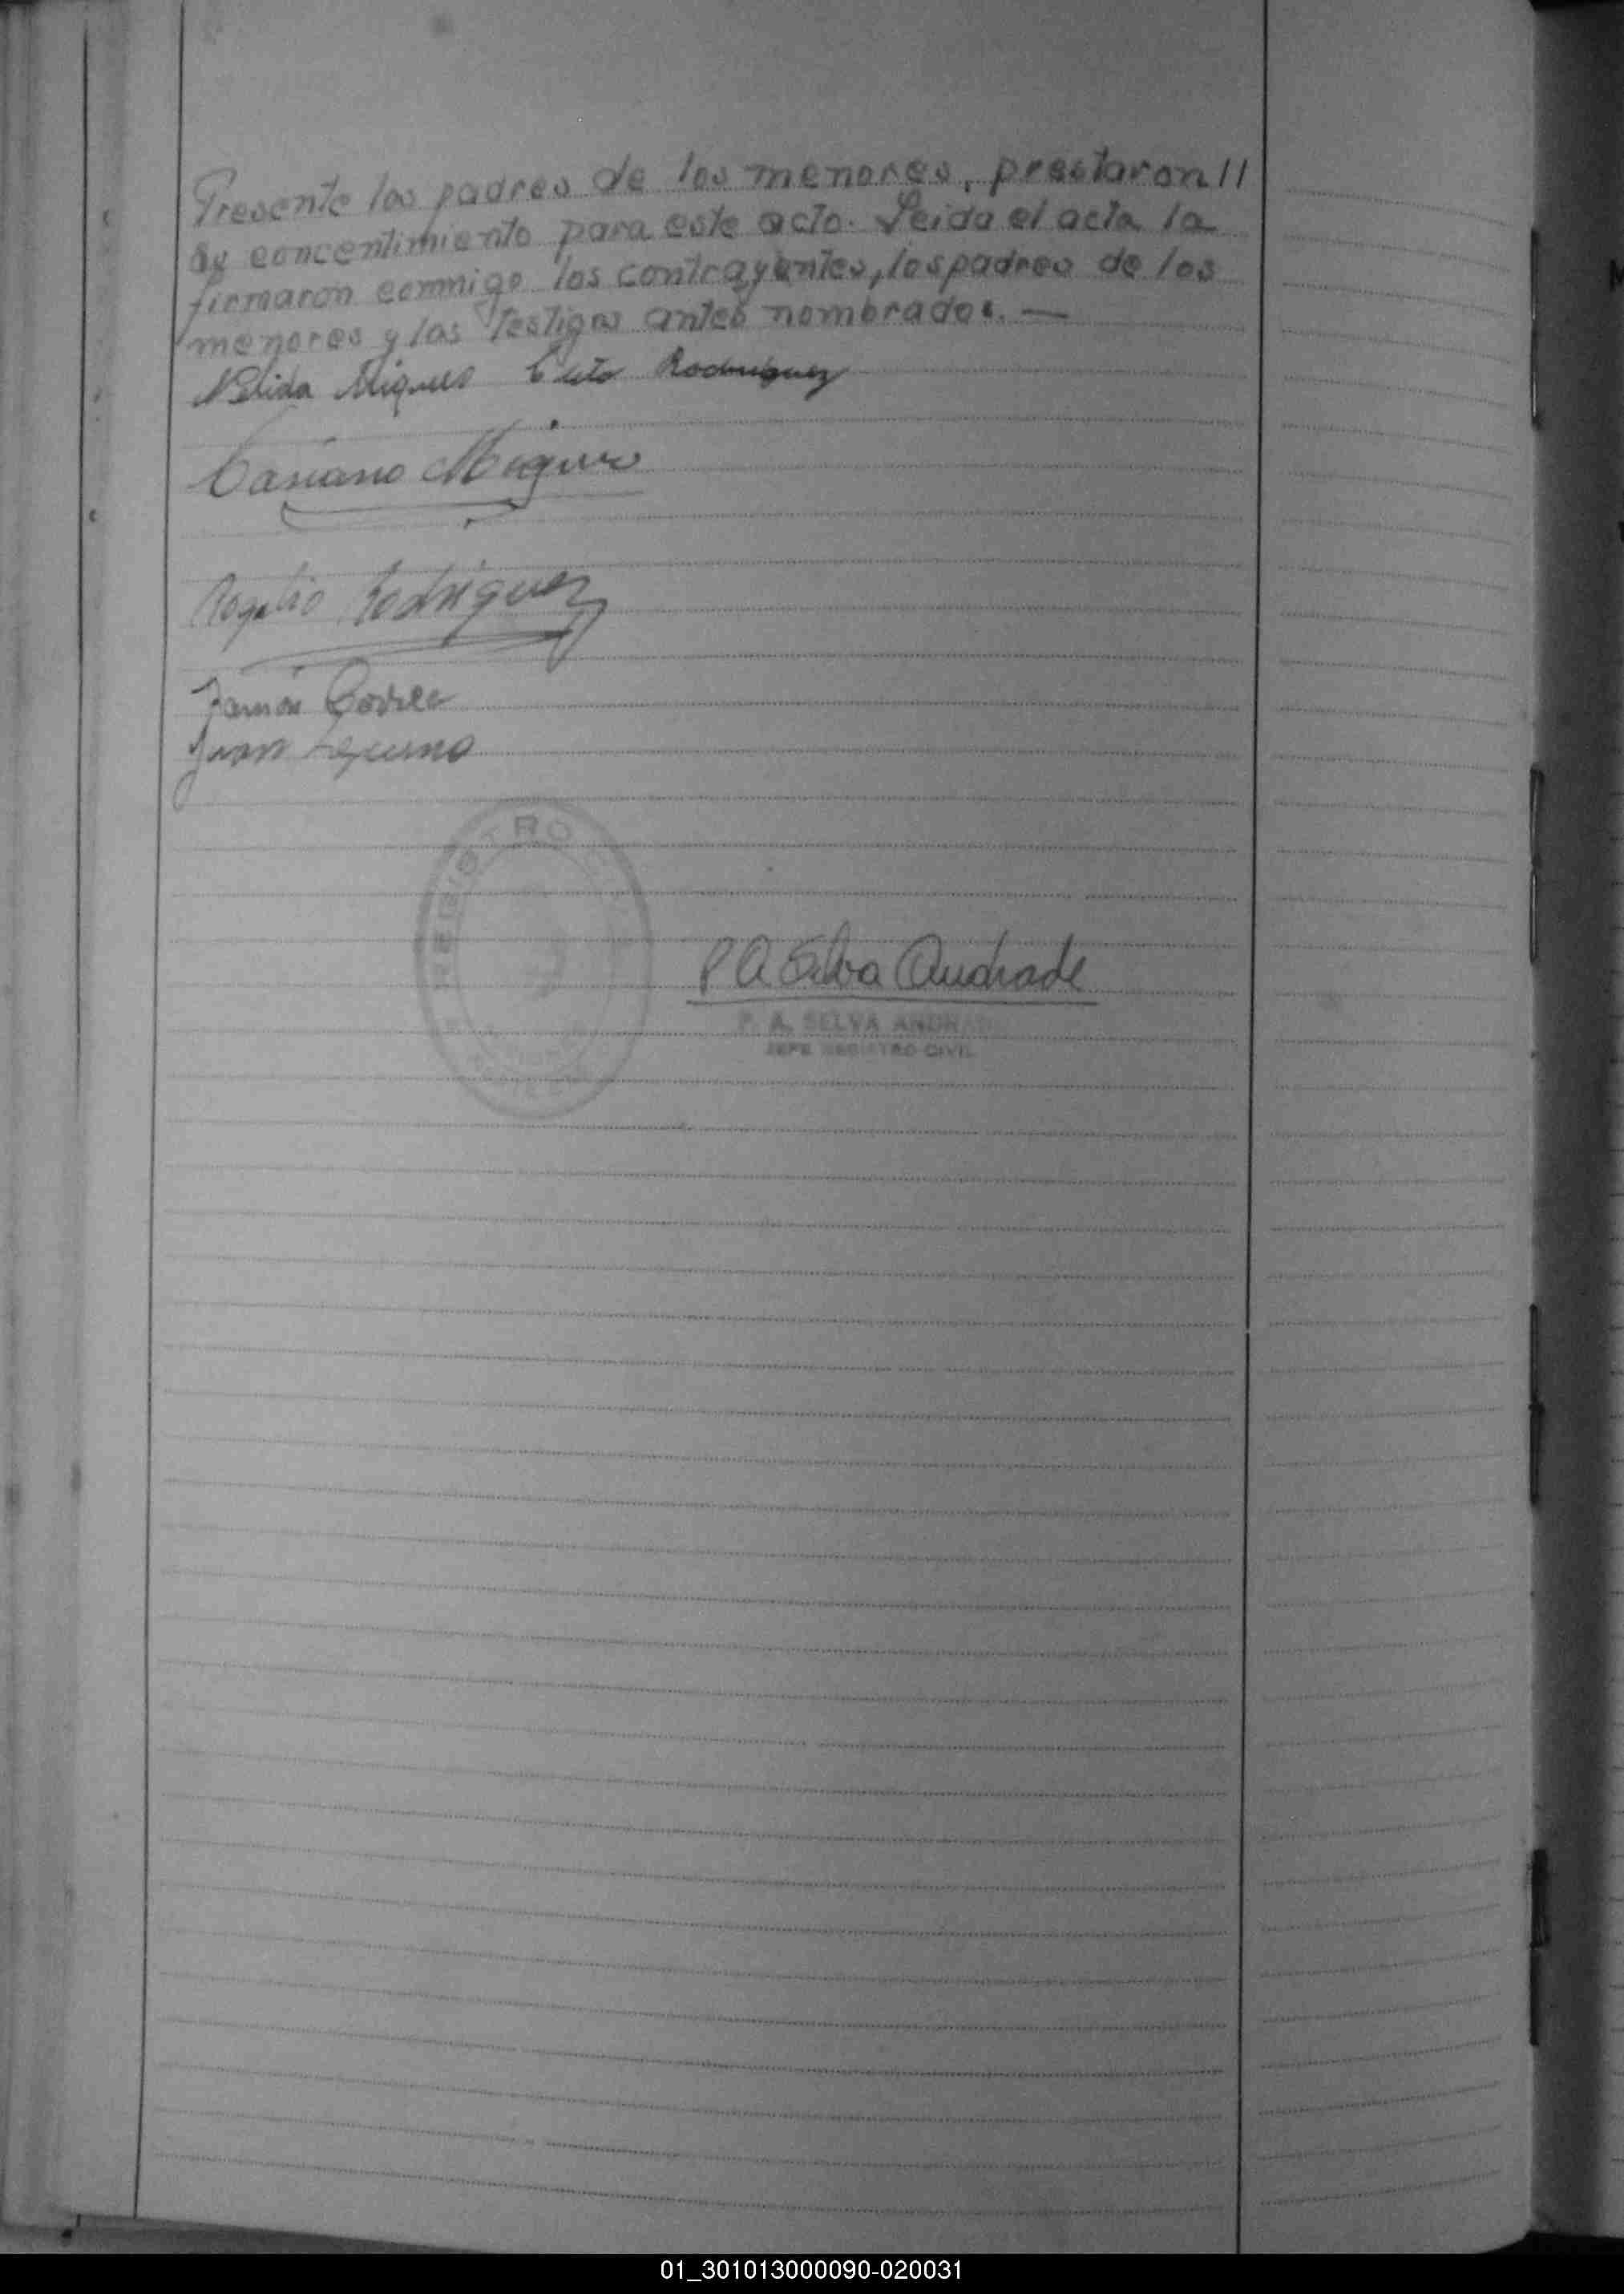 Presente los padres de los menores, prestaron//
su concentimiento para este acto. Leida el acta la
firmaron conmigo los contrayentes, los padres de los
menores y los Testigos antes nombrados. —
Nélida Migues Rodriguez
Casiano Migues
Rogelio Rodriguez
Ramón
Juan
REGISTRO
P A Selva Andrade
P. A. SELVA ANDRADE
JEFE REGISTRO CIVIL
01_301013000090-020031